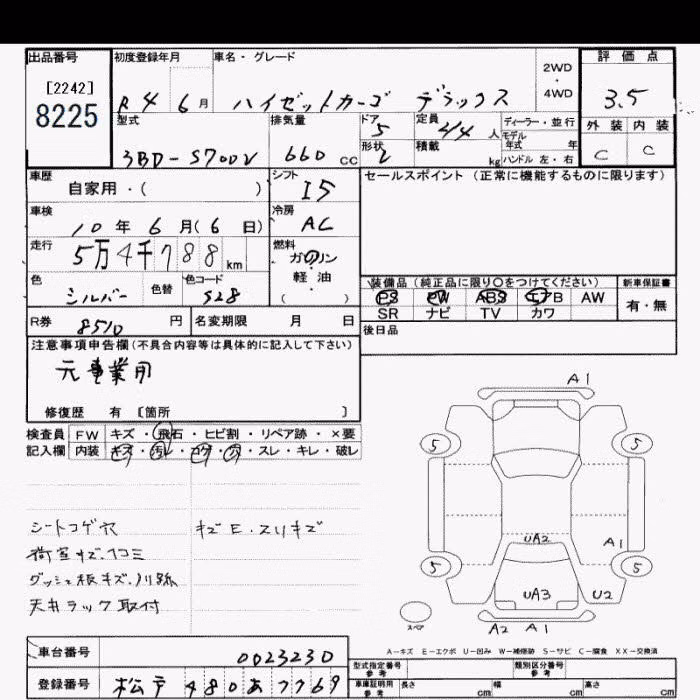 出品番号 初度登録年月 車名・グレード 評価点
[2242] 2WD
8225 R4 6月 ハイゼットカーゴ デラックス ・ 3.5
4WD
型式 排気量 ドア 5 定員 2/4人 ディーラー・並行 外装 内装
3BD-S700V 660cc 形状 2 積載 kg モデル年式 年 C C
ハンドル 左・右
車歴 シフト セールスポイント (正常に機能するものに限ります)
自家用・( ) I5
車検 冷房
10年 6月(6日) AC
走行 燃料
5万4千788km ガソリン
軽油
色 色替 色コード ( )
シルバー S28
装備品 (純正品に限り○をつけてください) 新車保証書
PS PW ABS エアB AW 有・無
SR ナビ TV カワ
R券 8510円 名変期限 月 日 後日品
注意事項申告欄(不具合内容等は具体的に記入して下さい)
元事業用
修復歴 有 [箇所 ]
検査員 FW キズ・飛石・ヒビ割・リペア跡・×要
記入欄 内装 キズ・汚・コゲ・穴・スレ・キレ・破レ
シートコゲ穴 キズE・スリキズ
荷室キズ、凹コミ
ダッシュ板キズ、ノリ跡
天井ラック取付
A1
5 5
UA2 A1
5 5
UA3 U2
スペア A2 A1
A-キズ E-エクボ U-凹み W-補修跡 S-サビ C-腐食 XX-交換済
車台番号 0023230
型式指定番号 参考 類別区分番号 参考
登録番号 松戸480あ7769
車庫証明用 参考 長さ cm 幅 cm 高さ cm